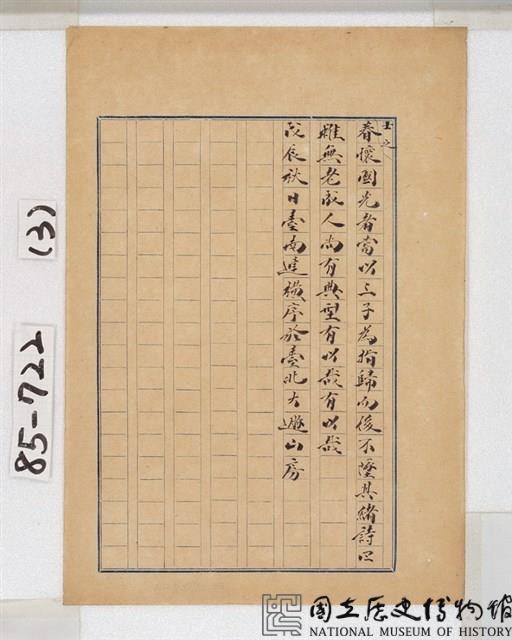 士之
眷懷國光者當以三子為指歸而後不墜其緒詩曰
雖無老成人尚有典型有以哉有以哉
戊辰秋日臺南連橫序於臺北大遯山房
(3)
85-722
國立歷史博物館
NATIONAL MUSEUM OF HISTORY